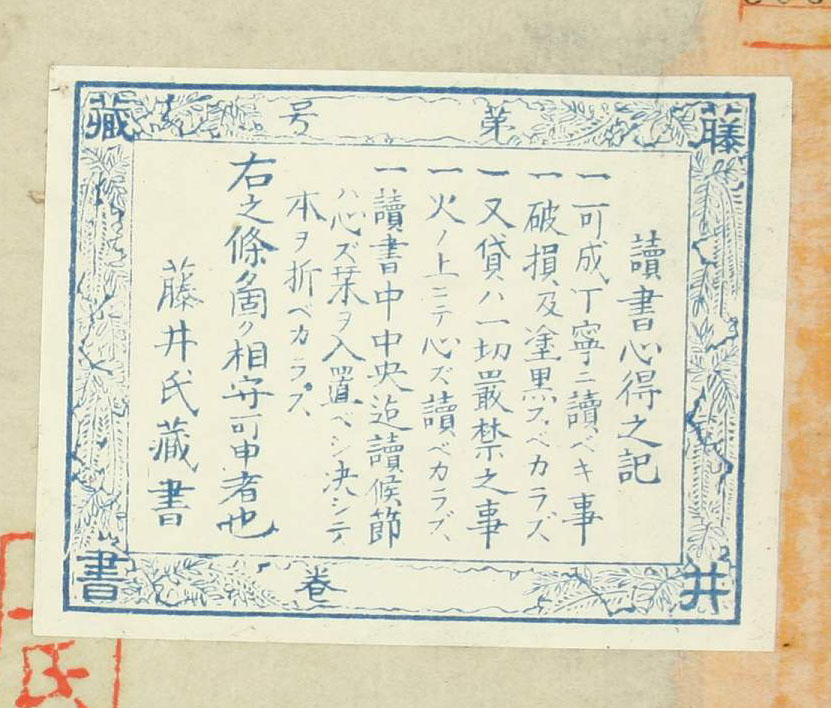 藤井藏書
第 号
讀書心得之記
一可成丁寧ニ讀ベキ事
一破損及塗黒スベカラズ
一又貸ハ一切嚴禁之事
一火ノ上ニテ心ズ讀ベカラズ、
一讀書中中央迠讀候節
ハ心ズ栞ヲ入置ベシ决シテ
本ヲ折ベカラズ、
右之條々箇ク相守可申者也
藤井氏藏書
卷
氏